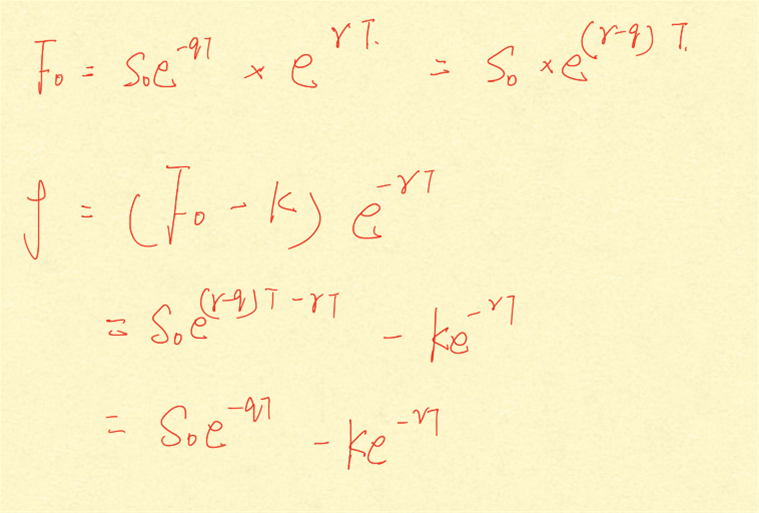 F₀ = S₀e^{-qT} × e^{rT.} = S₀ × e^{(r-q)T.}
f = (F₀ - K) e^{-rT}
= S₀e^{(r-q)T-rT} - Ke^{-rT}
= S₀e^{-qT} - Ke^{-rT}